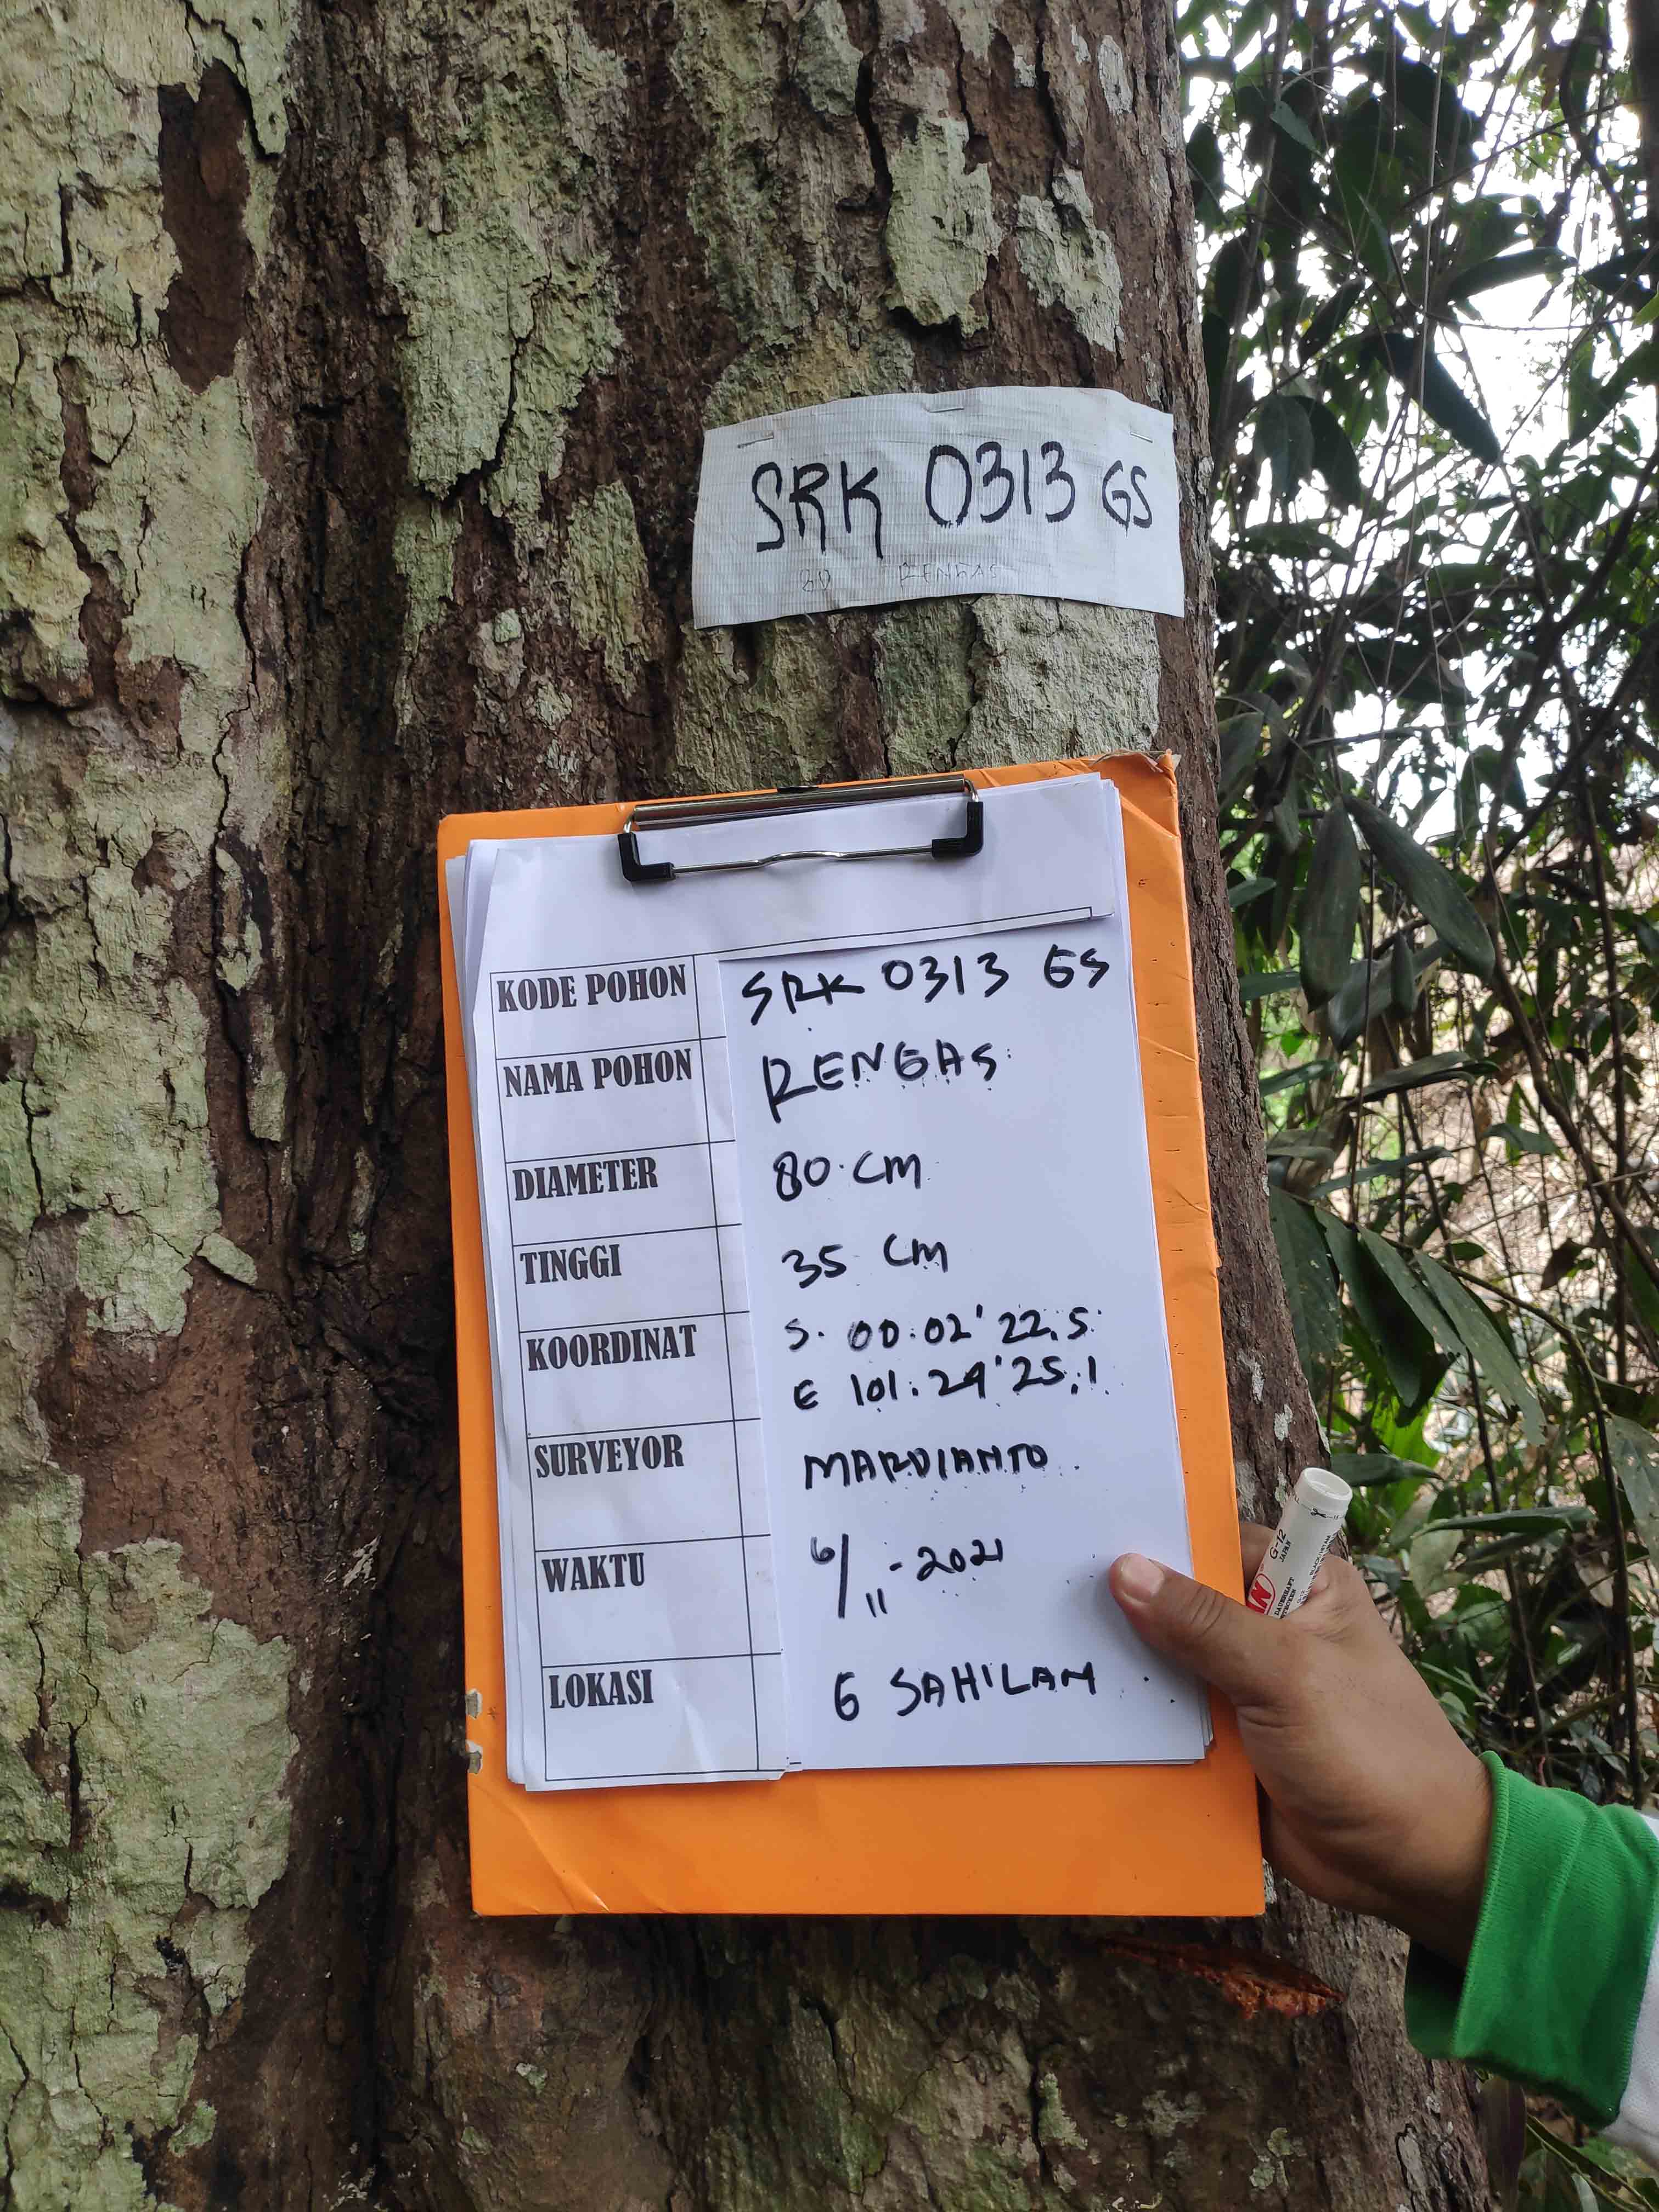 SRK 0313 GS
80 RENGAS
KODE POHON SRK 0313 GS
NAMA POHON RENGAS
DIAMETER 80 CM
TINGGI 35 CM
KOORDINAT S. 00.02' 22,5
E 101.29'25,1
SURVEYOR MARDIANTO
WAKTU 6/11-2021
LOKASI G SAHILAN
G-12
JAPAN